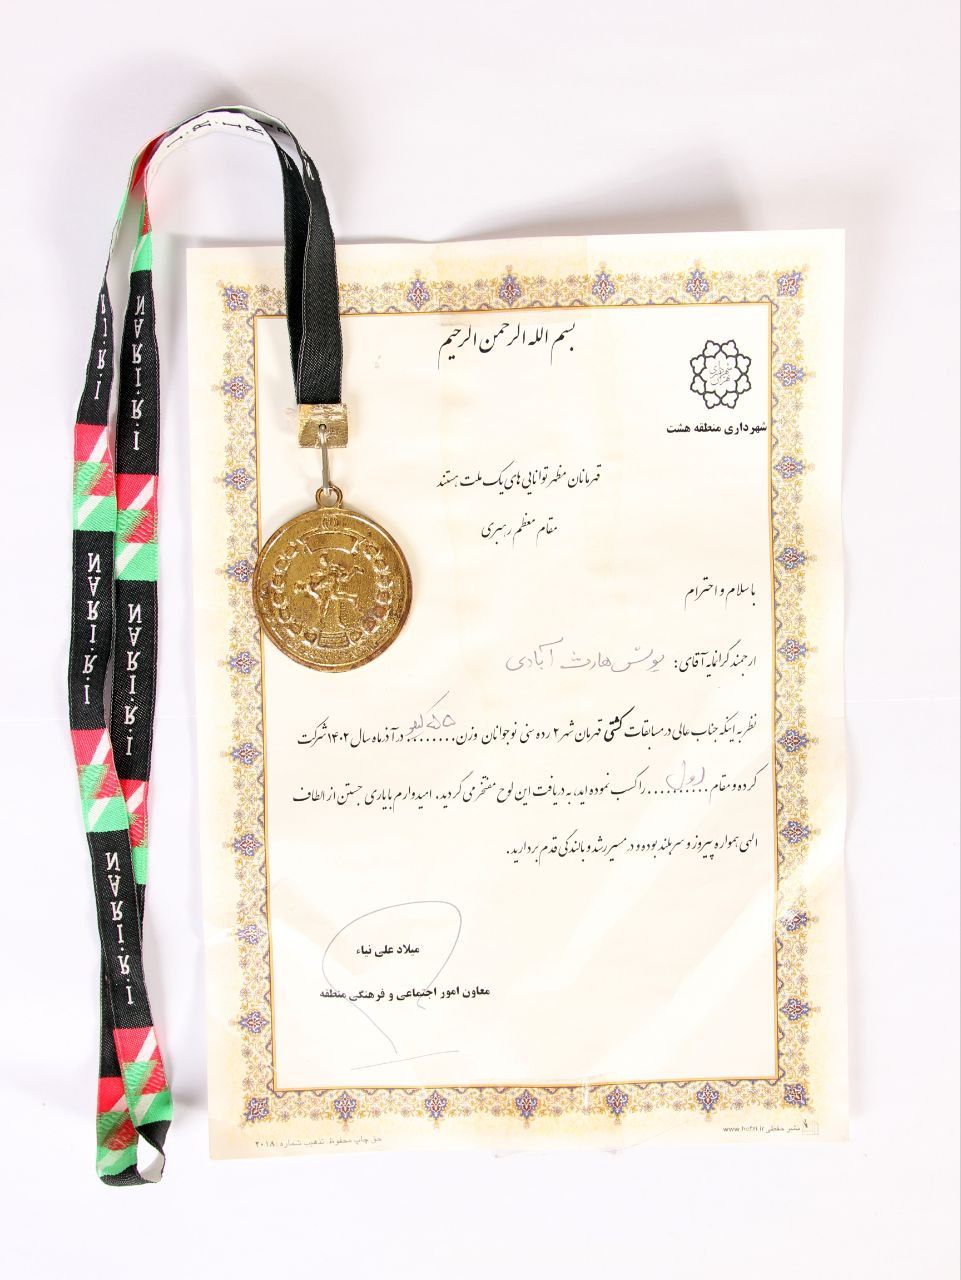 بسم الله الرحمن الرحیم
شهرداری منطقه هشت
قهرمانان مظهر توانایی های یک ملت هستند
مقام معظم رهبری
با سلام و احترام
ارجمند گرانمایه آقای: آبادی
نظر به اینکه جناب عالی در مسابقات کشتی قهرمان شهر ۲ رده سنی نوجوانان وزن ۵۵ کیلو در آذر ماه سال ۱۴۰۲ شرکت
کرده و مقام اول را کسب نموده اید، به دریافت این لوح مفتخر می گردید. امیدوارم با یاری جستن از الطاف
الهی همواره پیروز و سربلند بوده و در مسیر رشد و بالندگی قدم بردارید.
میلاد علی نیاء
معاون امور اجتماعی و فرهنگی منطقه
حق چاپ محفوظ تذهیب شماره: ۲۰۱۸
نشر حفظی www.hefzi.ir
I.R.IRAN
I.R.IRAN
I.R.IRAN
I.R.IRAN
I.R.I